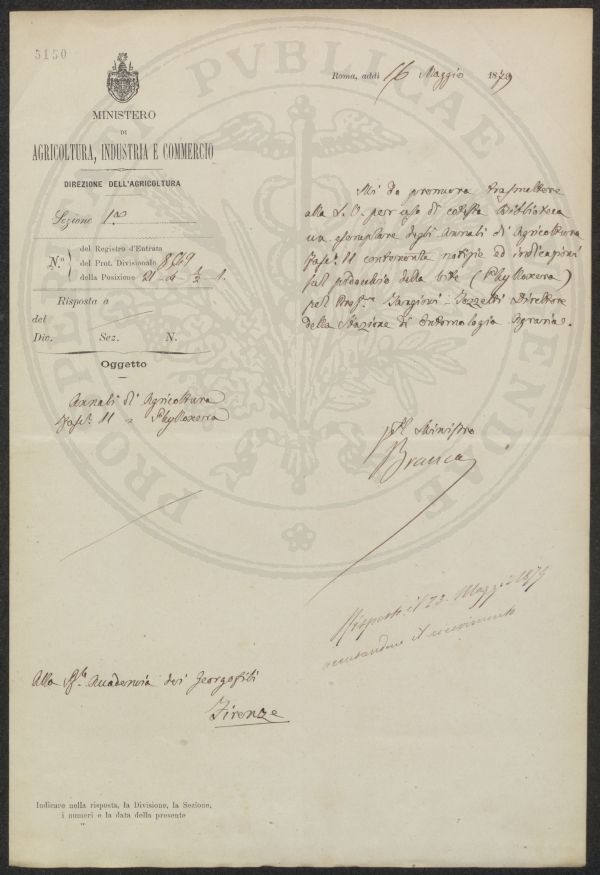 5150
Roma, addì 16 Maggio 1879
MINISTERO
DI
AGRICOLTURA, INDUSTRIA E COMMERCIO
DIREZIONE DELL'AGRICOLTURA
Sezione 1a
N.º
del Registro d'Entrata
del Prot. Divisionale 8569
della Posizione 21-4
Risposta a
del
Div. Sez. N.
Oggetto
Annali di Agricoltura
Fasc. 11 - Phylloxera
Mi do premura trasmettere
alla S.V. per uso di cotesta Biblioteca
un esemplare degli Annali di Agricoltura
fasc. 11 contenente notizie ed indicazioni
sul pidocchio della vite (Phylloxera)
pel Prof. Targioni-Tozzetti Direttore
della Stazione di Entomologia Agraria.
pel Ministro
Branca
Risposto il 23 Maggio 1879
accusandone il ricevimento
Alla Accademia dei Georgofili
Firenze
Indicare nella risposta, la Divisione, la Sezione,
i numeri e la data della presente
PUBLICAE
PROSPERITATI
AUGENDAE